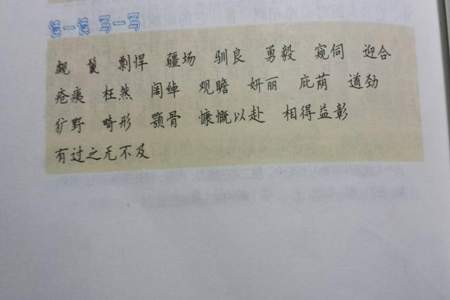 读一读 写一写
剽悍 疆场 驯良 勇毅 窥伺 迎合
疮痍 枉然 阔绰 观瞻 妍丽 庇荫 遒劲
犷野 畸形 颚骨 慷慨以赴 相得益彰
有过之无不及